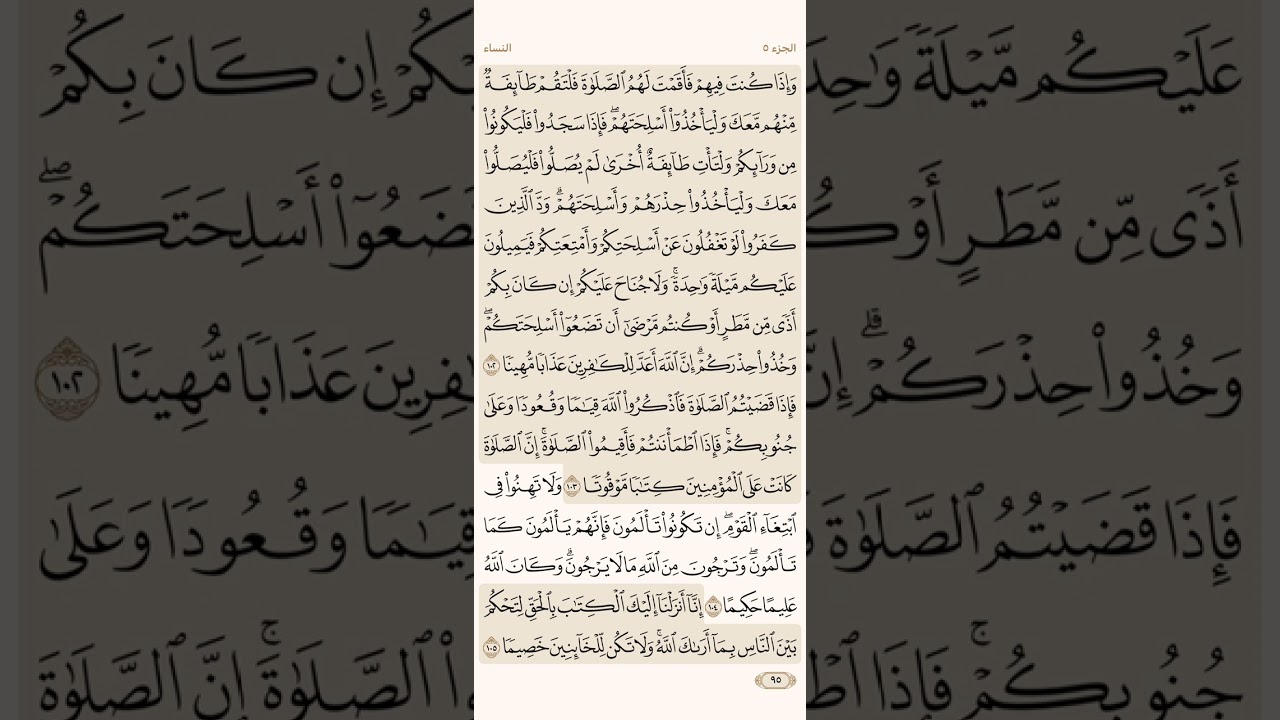 الجزء ٥
النساء
وَإِذَا كُنتَ فِيهِمْ فَأَقَمْتَ لَهُمُ ٱلصَّلَوٰةَ فَلْتَقُمْ طَآئِفَةٌ
مِّنْهُم مَّعَكَ وَلْيَأْخُذُوٓا۟ أَسْلِحَتَهُمْۖ فَإِذَا سَجَدُوا۟ فَلْيَكُونُوا۟
مِن وَرَآئِكُمْ وَلْتَأْتِ طَآئِفَةٌ أُخْرَىٰ لَمْ يُصَلُّوا۟ فَلْيُصَلُّوا۟
مَعَكَ وَلْيَأْخُذُوا۟ حِذْرَهُمْ وَأَسْلِحَتَهُمْۗ وَدَّ ٱلَّذِينَ
كَفَرُوا۟ لَوْ تَغْفُلُونَ عَنْ أَسْلِحَتِكُمْ وَأَمْتِعَتِكُمْ فَيَمِيلُونَ
عَلَيْكُم مَّيْلَةً وَٰحِدَةًۚ وَلَا جُنَاحَ عَلَيْكُمْ إِن كَانَ بِكُمْ
أَذًى مِّن مَّطَرٍ أَوْ كُنتُم مَّرْضَىٰٓ أَن تَضَعُوٓا۟ أَسْلِحَتَكُمْۖ
وَخُذُوا۟ حِذْرَكُمْۗ إِنَّ ٱللَّهَ أَعَدَّ لِلْكَٰفِرِينَ عَذَابًا مُّهِينًا ١٠٢
فَإِذَا قَضَيْتُمُ ٱلصَّلَوٰةَ فَٱذْكُرُوا۟ ٱللَّهَ قِيَٰمًا وَقُعُودًا وَعَلَىٰ
جُنُوبِكُمْۚ فَإِذَا ٱطْمَأْنَنتُمْ فَأَقِيمُوا۟ ٱلصَّلَوٰةَۚ إِنَّ ٱلصَّلَوٰةَ
كَانَتْ عَلَى ٱلْمُؤْمِنِينَ كِتَٰبًا مَّوْقُوتًا ١٠٣ وَلَا تَهِنُوا۟ فِى
ٱبْتِغَآءِ ٱلْقَوْمِۖ إِن تَكُونُوا۟ تَأْلَمُونَ فَإِنَّهُمْ يَأْلَمُونَ كَمَا
تَأْلَمُونَۖ وَتَرْجُونَ مِنَ ٱللَّهِ مَا لَا يَرْجُونَۗ وَكَانَ ٱللَّهُ
عَلِيمًا حَكِيمًا ١٠٤ إِنَّآ أَنزَلْنَآ إِلَيْكَ ٱلْكِتَٰبَ بِٱلْحَقِّ لِتَحْكُمَ
بَيْنَ ٱلنَّاسِ بِمَآ أَرَىٰكَ ٱللَّهُۚ وَلَا تَكُن لِّلْخَآئِنِينَ خَصِيمًا ١٠٥
٩٥